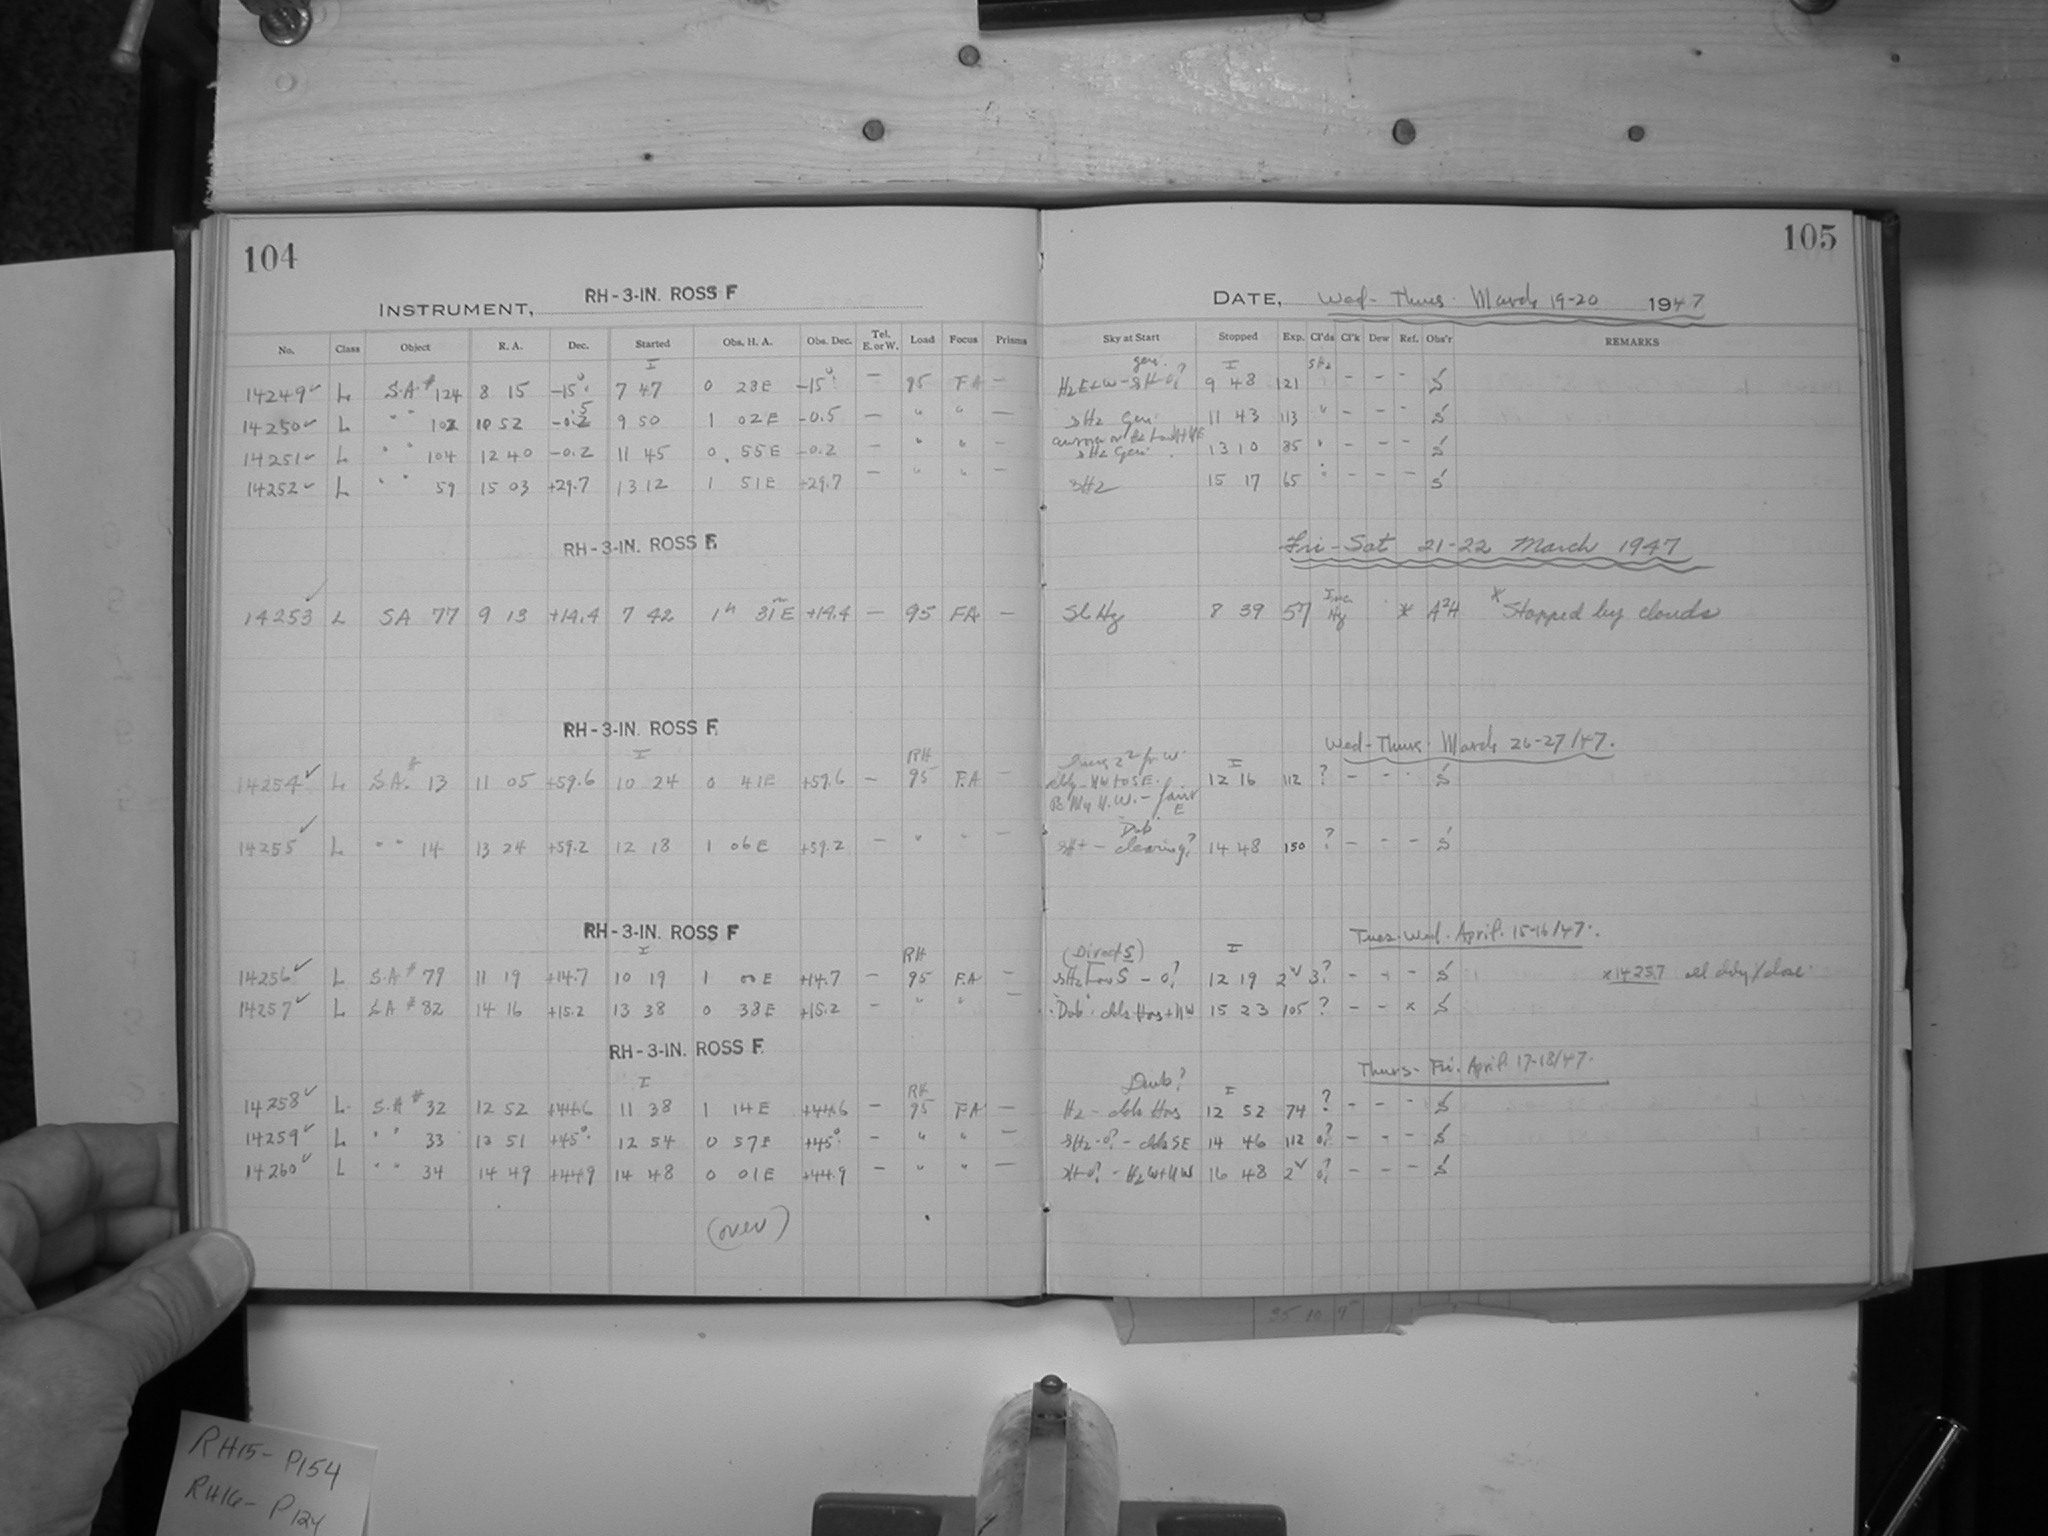 104
INSTRUMENT, RH-3-IN. ROSS F
No. Class Object R. A. Dec. Started Obs. H. A. Obs. Dec. Tel. E. or W. Load Focus Prisms
I
14249✓ L S.A# 124 8 15 -15° 7 47 0 28E -15° — 95 FA —
14250✓ L " " 102 10 52 -0.5 9 50 1 02E -0.5 — " " —
14251✓ L " " 104 12 40 -0.2 11 45 0 55E -0.2 — " " —
14252✓ L " " 59 15 03 +29.7 13 12 1 51E +29.7 — " " —
RH-3-IN. ROSS F.
14253✓ L SA 77 9 13 +14.4 7 42 1h 31m E +14.4 — 95 FA —
RH-3-IN. ROSS F.
I RH
14254✓ L S.A.# 13 11 05 +59.6 10 24 0 41E +59.6 — 95 F.A —
14255✓ L " " 14 13 24 +59.2 12 18 1 06E +59.2 — " " —
RH-3-IN. ROSS F
I RH
14256✓ L S.A# 79 11 19 +14.7 10 19 1 00E +14.7 — 95 F.A —
14257✓ L SA# 82 14 16 +15.2 13 38 0 38E +15.2 — " " —
RH-3-IN. ROSS F.
I RH
14258✓ L S.A# 32 12 52 +44.6 11 38 1 14E +44.6 — 95 FA —
14259✓ L " " 33 13 51 +45° 12 54 0 57E +45° — " " —
14260✓ L " " 34 14 49 +44.9 14 48 0 01E +44.9 — " " —
(over)
105
DATE, Wed-Thurs. March 19-20 1947
Sky at Start Stopped Exp. Cl'ds Cl'k Dew Ref. Obs'r REMARKS
I
9 48 121 - - - S
11 43 113 " - - - S
13 10 85 " - - - S
sHz 15 17 65 " - - - S
Fri-Sat 21-22 March 1947
Sl Hz 8 39 57 Hz * A²H *Stopped by clouds
Wed-Thurs. March 26-27/47.
I
12 16 112 ? - - - S
clearing? 14 48 150 ? - - - S
Tues-Wed. April. 15-16/47.
(Direct S) I
12 19 2 3? - - - S x14257
"Dub" 15 23 105 ? - - x S
Thurs-Fri. April. 17-18/47.
Dub? I
Hz - 12 52 74 ? - - - S
14 46 112 - - - S
16 48 2 - - - S
35 10 9
RH15- P154
RH16- P124